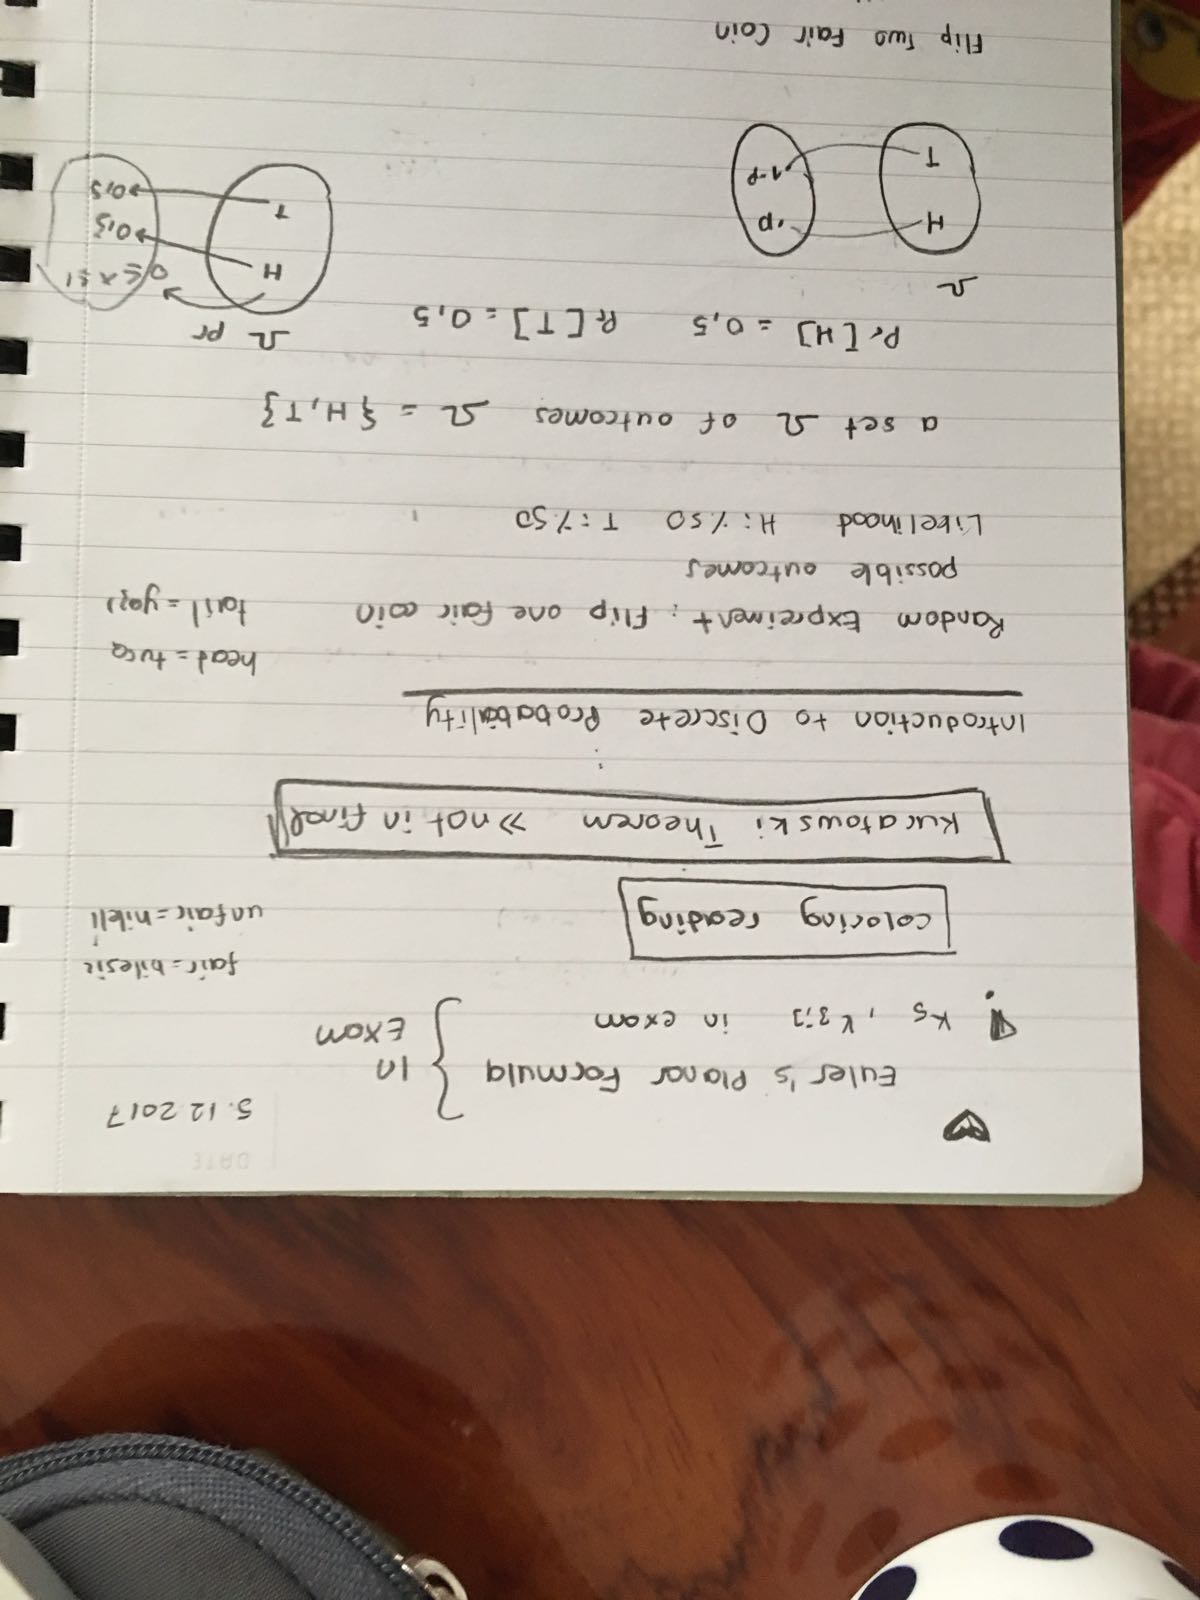 DATE
5.12.2017
Euler's Planar Formula
In
Exam
K5 , K3;3 in exam
fair = hilesiz
unfair = hileli
coloring reading
Kuratowski Theorem >> not in final
Introduction to Discrete Probability
head = tura
tail = yazı
Random Expreiment : Flip one fair coin
possible outcomes
Likelihood H : %50 T : %50
a set Ω of outcomes Ω = {H,T}
Pr[H] = 0,5 Pr[T] = 0,5
Ω pr
H 0≤x≤1
0,5
T 0,5
Ω
H .p
T 1-p
Flip Two Fair Coin